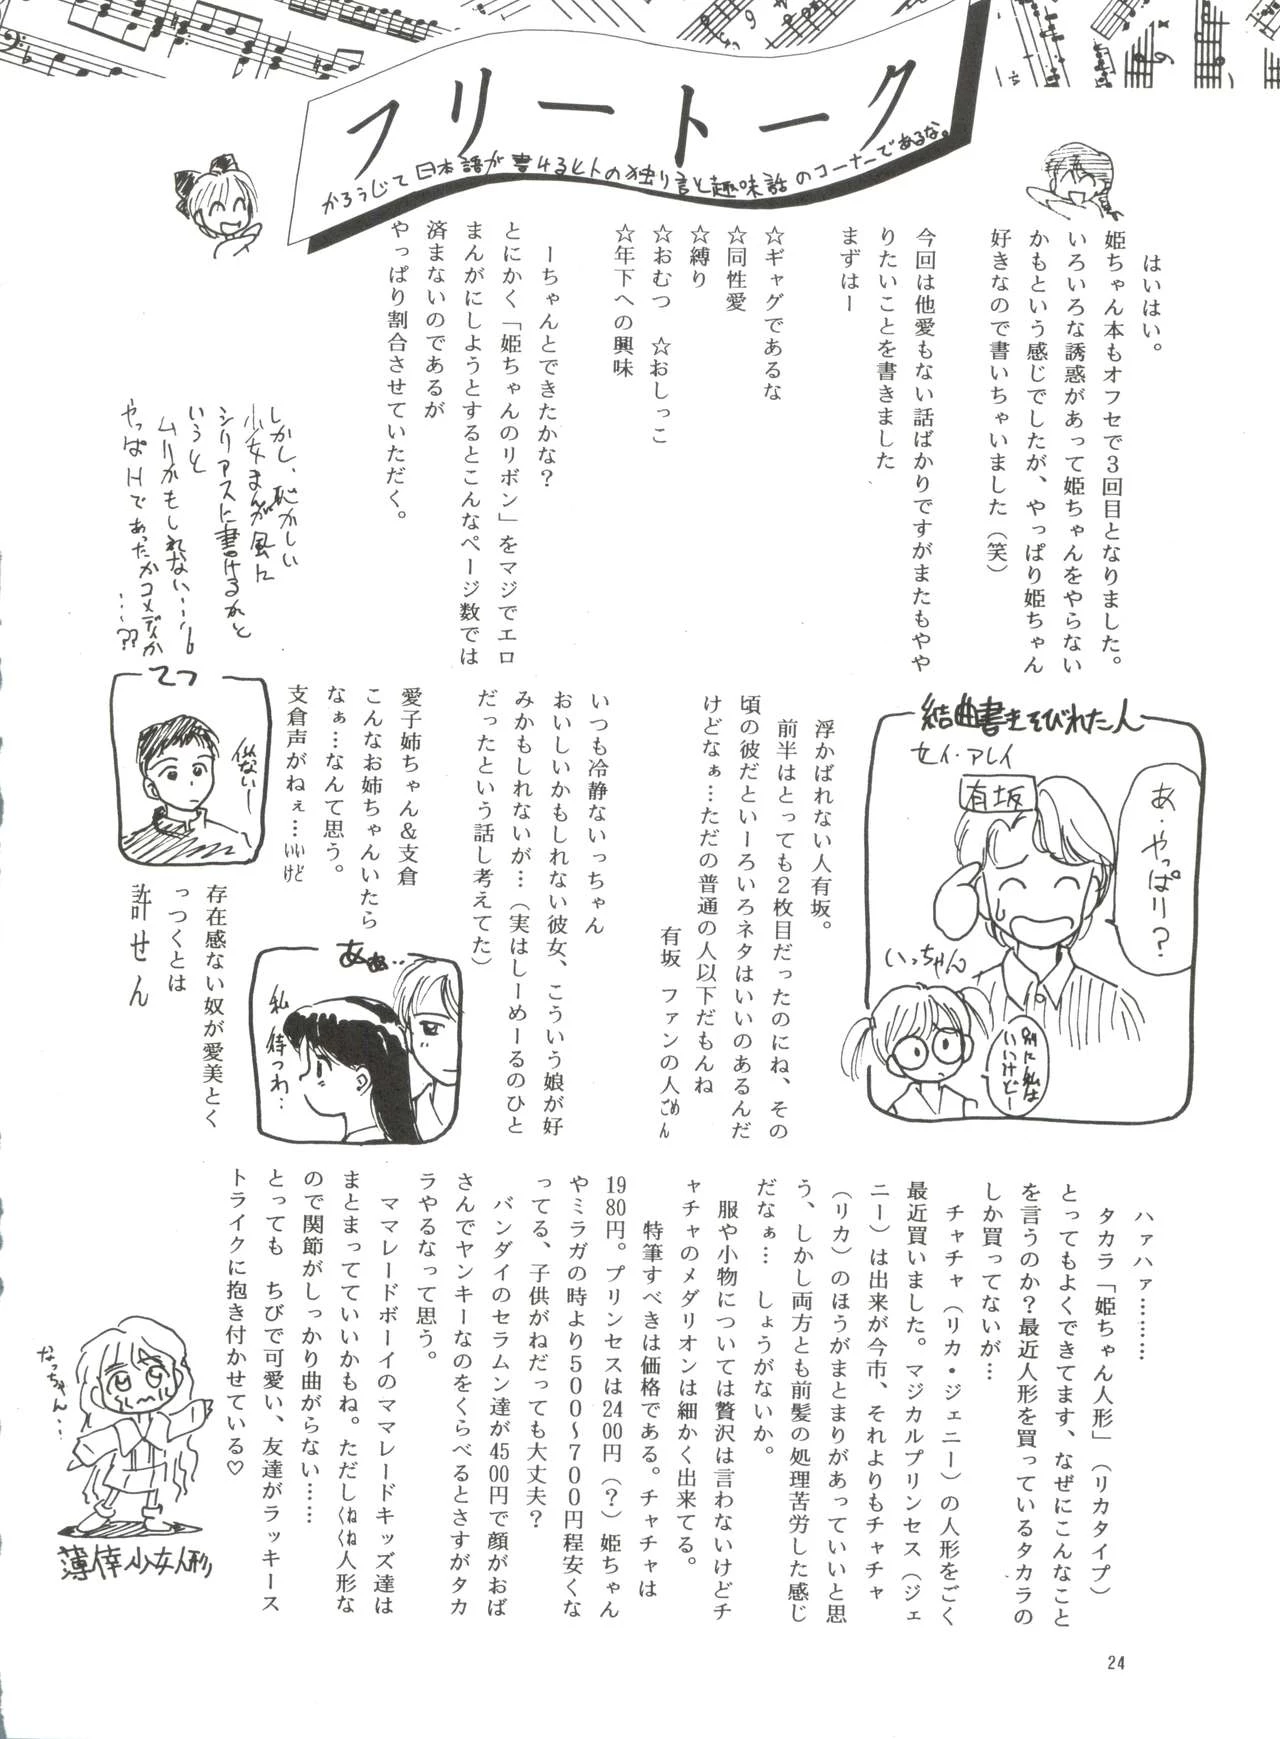 フリートーク
かろうじて日本語が書けるヒトの独り言と趣味話のコーナーであるな。
はいはい。
姫ちゃん本もオフセで３回目となりました。
いろいろな誘惑があって姫ちゃんをやらない
かもという感じでしたが、やっぱり姫ちゃん
好きなので書いちゃいました（笑）
今回は他愛もない話ばかりですがまたもやや
りたいことを書きました
まずはー
☆ギャグであるな
☆同性愛
☆縛り
☆おむつ　☆おしっこ
☆年下への興味
ーちゃんとできたかな？
とにかく「姫ちゃんのリボン」をマジでエロ
まんがにしようとするとこんなページ数では
済まないのであるが
やっぱり割合させていただく。
しかし、恥かしい
少女まんが風に
シリアスに書けるかと
いうと
ムリかもしれない…
やっぱHであったかコメディか
…??
結曲書きそびれた人
セイ・アレイ
有坂
あ・やっぱり？
いっちゃん
別に私は
いいけどー
浮かばれない人有坂。
前半はとっても２枚目だったのにね、その
頃の彼だといーろいろネタはいいのあるんだ
けどなぁ…ただの普通の人以下だもんね
有坂　ファンの人ごめん
いつも冷静ないっちゃん
おいしいかもしれない彼女、こういう娘が好
みかもしれないが…（実はしーめーるのひと
だったという話し考えてた）
愛子姉ちゃん＆支倉
こんなお姉ちゃんいたら
なぁ…なんて思う。
支倉声がねぇ…いいけど
あぁぁ…
私
待つわ…
てつ
似ないー
存在感ない奴が愛美とく
っつくとは
許せん
ハァハァ………
タカラ「姫ちゃん人形」（リカタイプ）
とってもよくできてます、なぜにこんなこと
を言うのか？最近人形を買っているタカラの
しか買ってないが…
チャチャ（リカ・ジェニー）の人形をごく
最近買いました。マジカルプリンセス（ジェ
ニー）は出来が今市、それよりもチャチャ
（リカ）のほうがまとまりがあっていいと思
う、しかし両方とも前髪の処理苦労した感じ
だなぁ…　しょうがないか。
服や小物については贅沢は言わないけどチ
ャチャのメダリオンは細かく出来てる。
特筆すべきは価格である。チャチャは
1980円。プリンセスは2400円（？）姫ちゃん
やミラガの時より５００〜７００円程安くな
ってる、子供がねだっても大丈夫？
バンダイのセラムン達が4500円で顔がおば
さんでヤンキーなのをくらべるとさすがタカ
ラやるなって思う。
ママレードボーイのママレードキッズ達は
まとまってていいかもね。ただしくねくね人形な
ので関節がしっかり曲がらない……
とっても　ちびで可愛い、友達がラッキース
トライクに抱き付かせている♡
なっちゃん…
薄倖少女人形
24